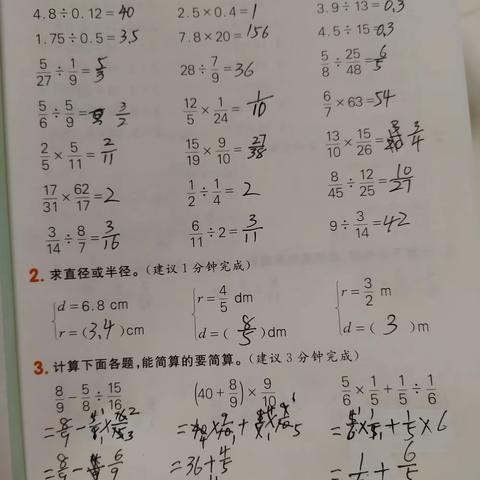 4.8÷0.12=40 2.5×0.4=1 3.9÷13=0.3
1.75÷0.5=3.5 7.8×20=156 4.5÷15=0.3
5/27÷1/9=5/3 28÷7/9=36 5/8÷25/48=6/5
5/6÷5/9=3/2 12/5×1/24=1/10 6/7×63=54
2/5×5/11=2/11 15/19×9/10=27/38 13/10×15/26=3/4
17/31×62/17=2 1/2÷1/4=2 8/45÷12/25=10/27
3/14÷8/7=3/16 6/11÷2=3/11 9÷3/14=42
2. 求直径或半径。(建议1分钟完成)
d=6.8 cm r=4/5 dm r=3/2 m
r=(3.4)cm d=(8/5)dm d=(3)m
3. 计算下面各题,能简算的要简算。(建议3分钟完成)
8/9-5/8÷15/16 (40+8/9)×9/10 5/6×1/5+1/5÷1/6
=36+4/5